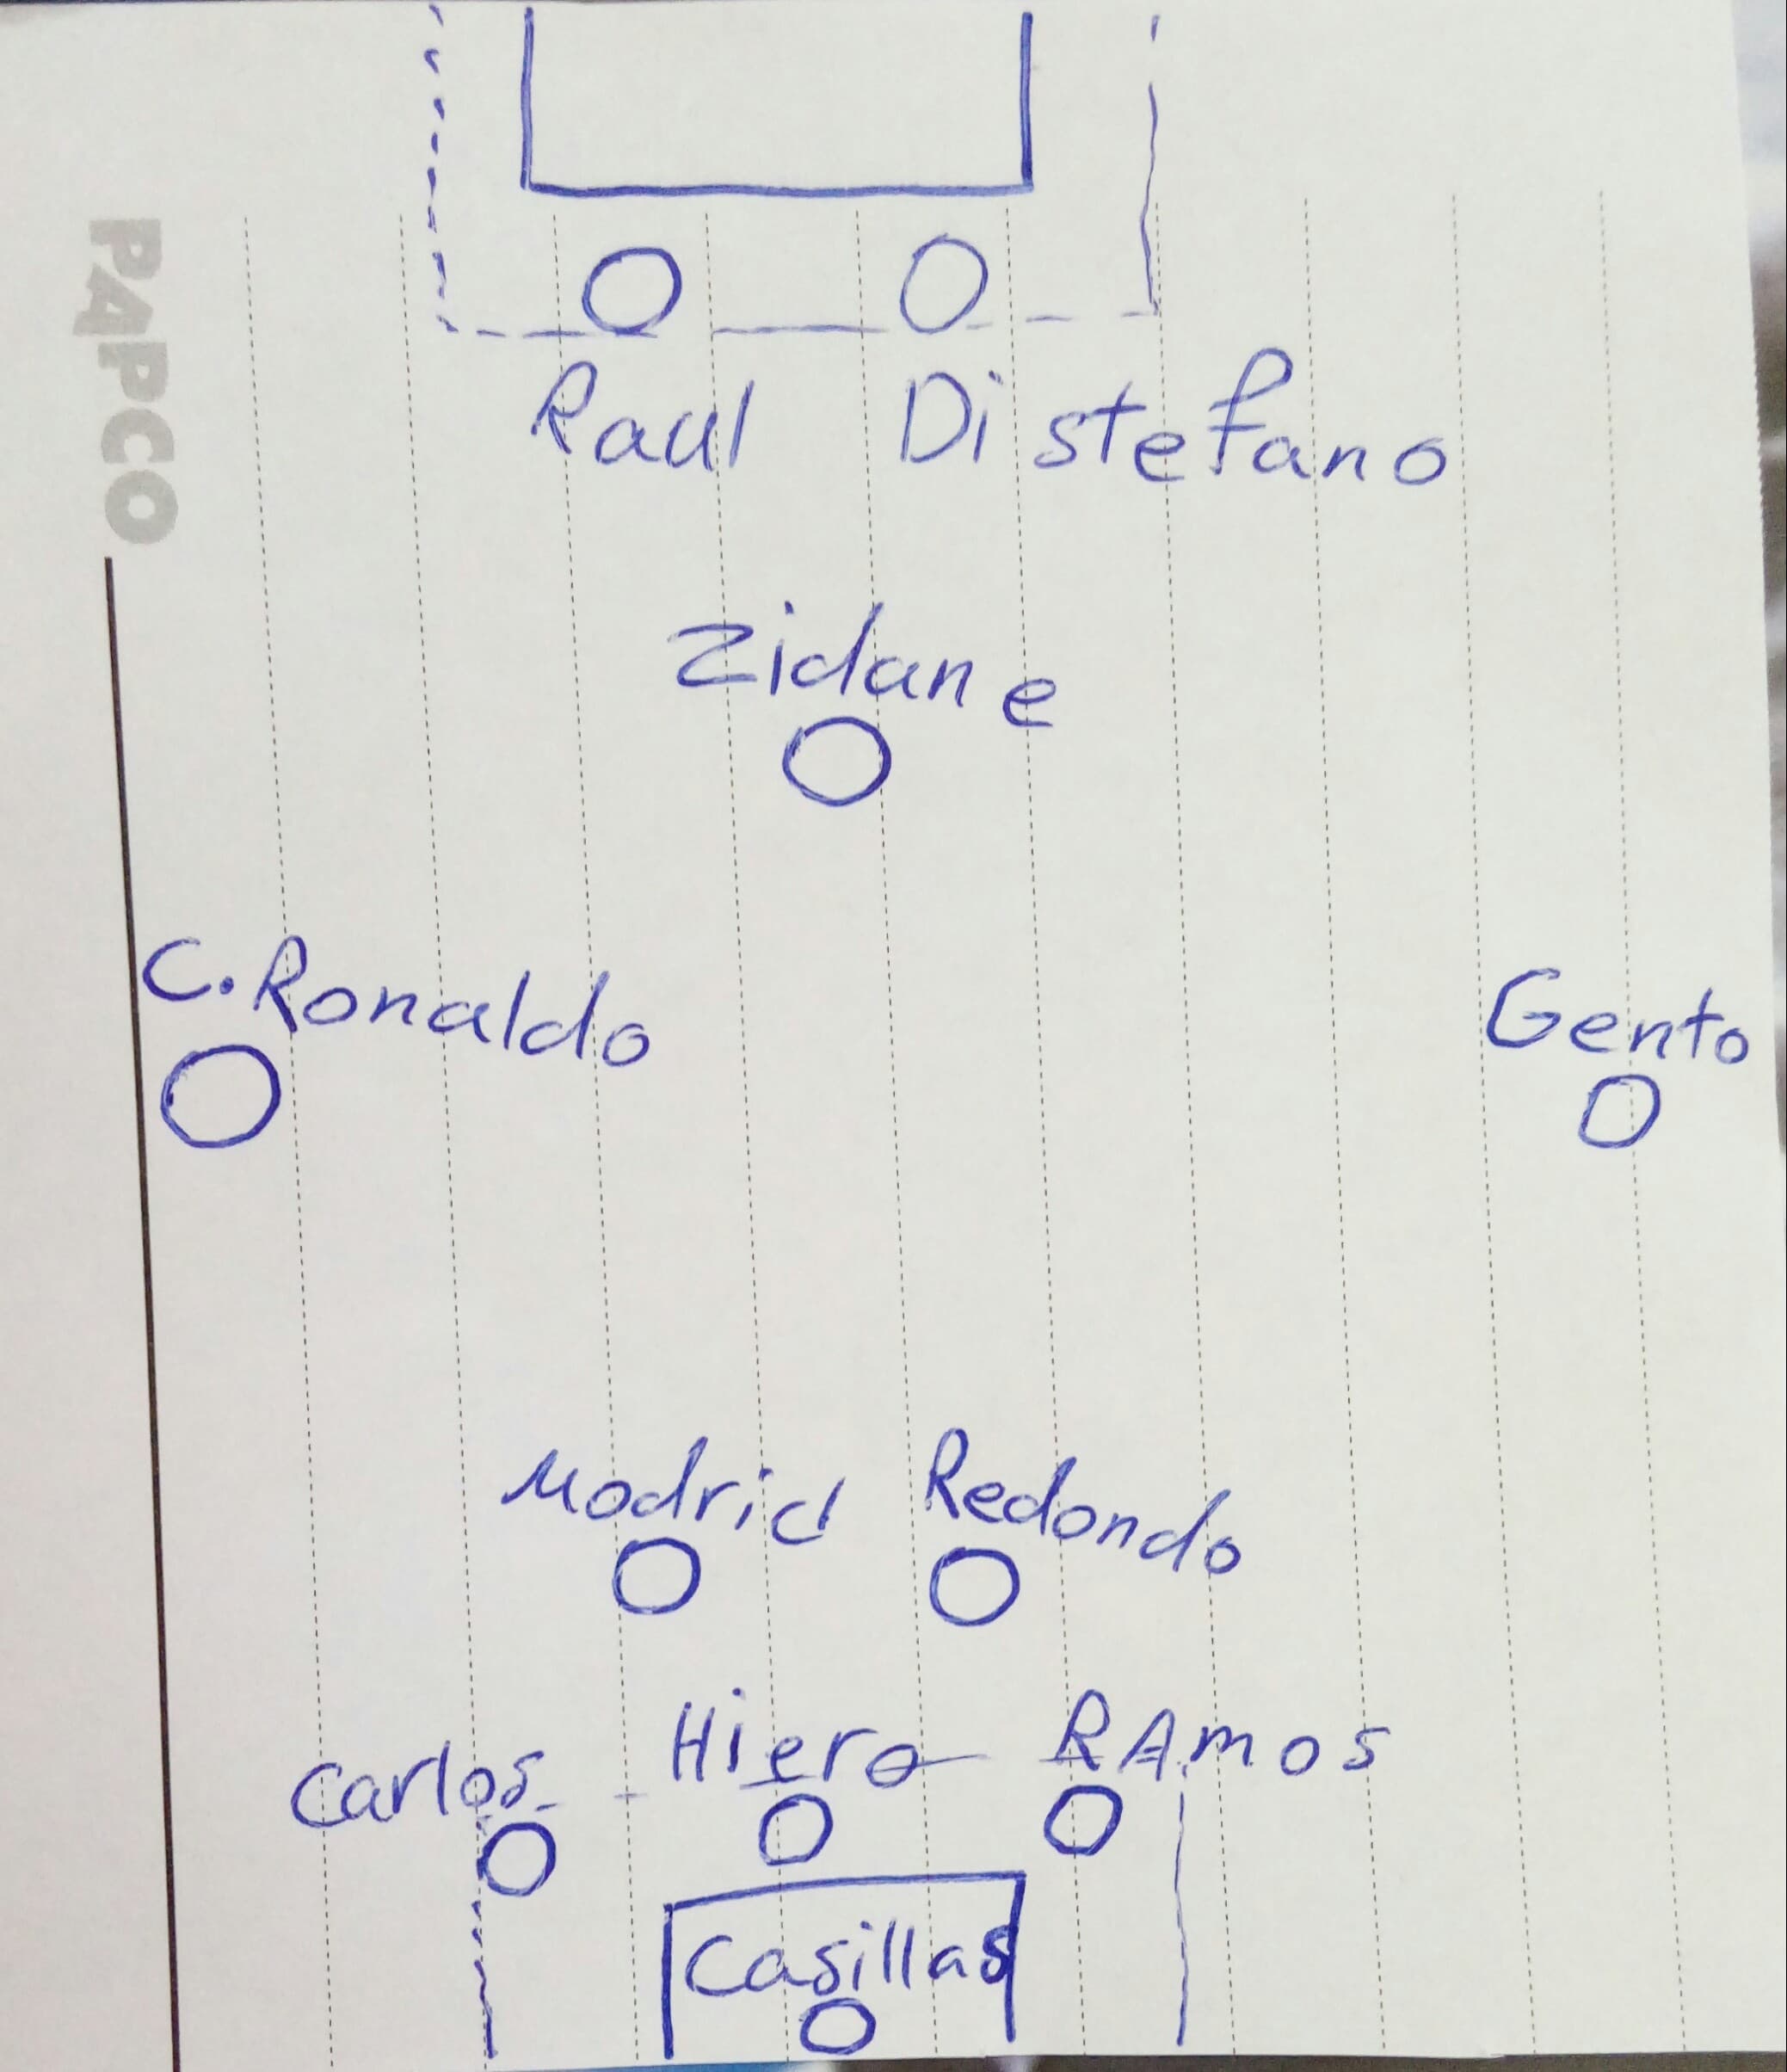 PAPCO
Raul Di stefano
Zidane
C. Ronaldo
Gento
Modric Redondo
Carlos Hiero RAmos
Casillas